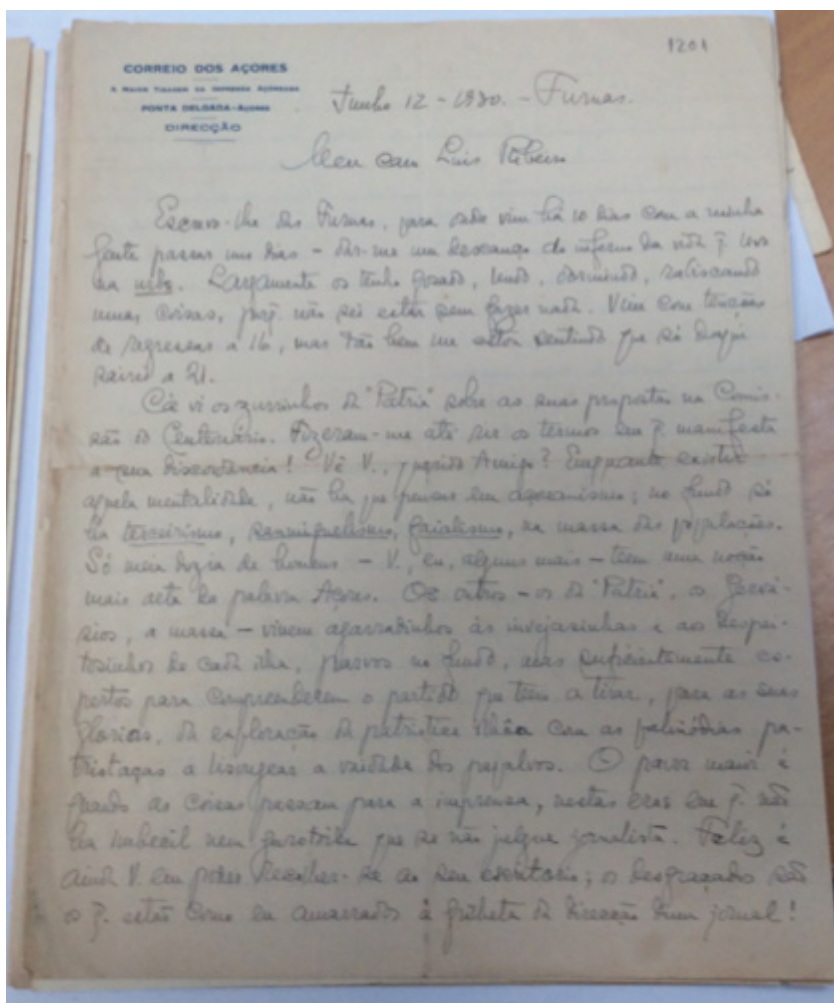 1201
CORREIO DOS AÇORES
A MAIOR TIRAGEM DA IMPRENSA AÇOREANA
PONTA DELGADA-AÇORES
DIRECÇÃO
Junho 12 - 1930. - Furnas.
Meu caro Luis Ribeiro
Escrevo-lhe das Furnas, para onde vim há 10 dias com a minha
gente passar uns dias - dar-me um descanço do inferno da vida q. levo
na urbe. Largamente os tenho gosado, lendo, dormindo, rabiscando
umas coisas, porq. não sei estar sem fazer nada. Vim com tenção
de regressar a 16, mas tão bem me estou sentindo que só daqui
sairei a 21.
Cá vi os zurrinhos da "Patria" sobre as suas propostas na Comis-
são do Centenário. Fizeram-me até rir os termos em q. manifesta
a sua discordancia! Vê V., querido Amigo? Emquanto existir
aquela mentalidade, não ha que pensar em açoreanismo; no fundo só
ha terceirismo, sanmiguelismo, faialismo, na massa das populações.
Só meia duzia de homens - V., eu, alguns mais - teem uma noção
mais alta da palavra Açores. Os outros - os da "Patria", os
a massa - vivem agarradinhos às invejasinhas e aos despei-
tosinhos de cada ilha, parvos no fundo, mas suficientemente es-
pertos para compreenderem o partido que teem a tirar, para as suas
glorias, da exploração da patriotice ilhôa com as palinódias pa-
triotaças a lisongear a vaidade dos papalvos. O pavor maior é
quando as coisas passam para a imprensa, nestas eras em q. não
ha imbecil nem garotoila que se não julgue jornalista. Feliz é
ainda V. em poder recolher-se ao seu escritorio; os desgraçados são
os q. estão como eu amarrados à grilheta da direcção dum jornal!